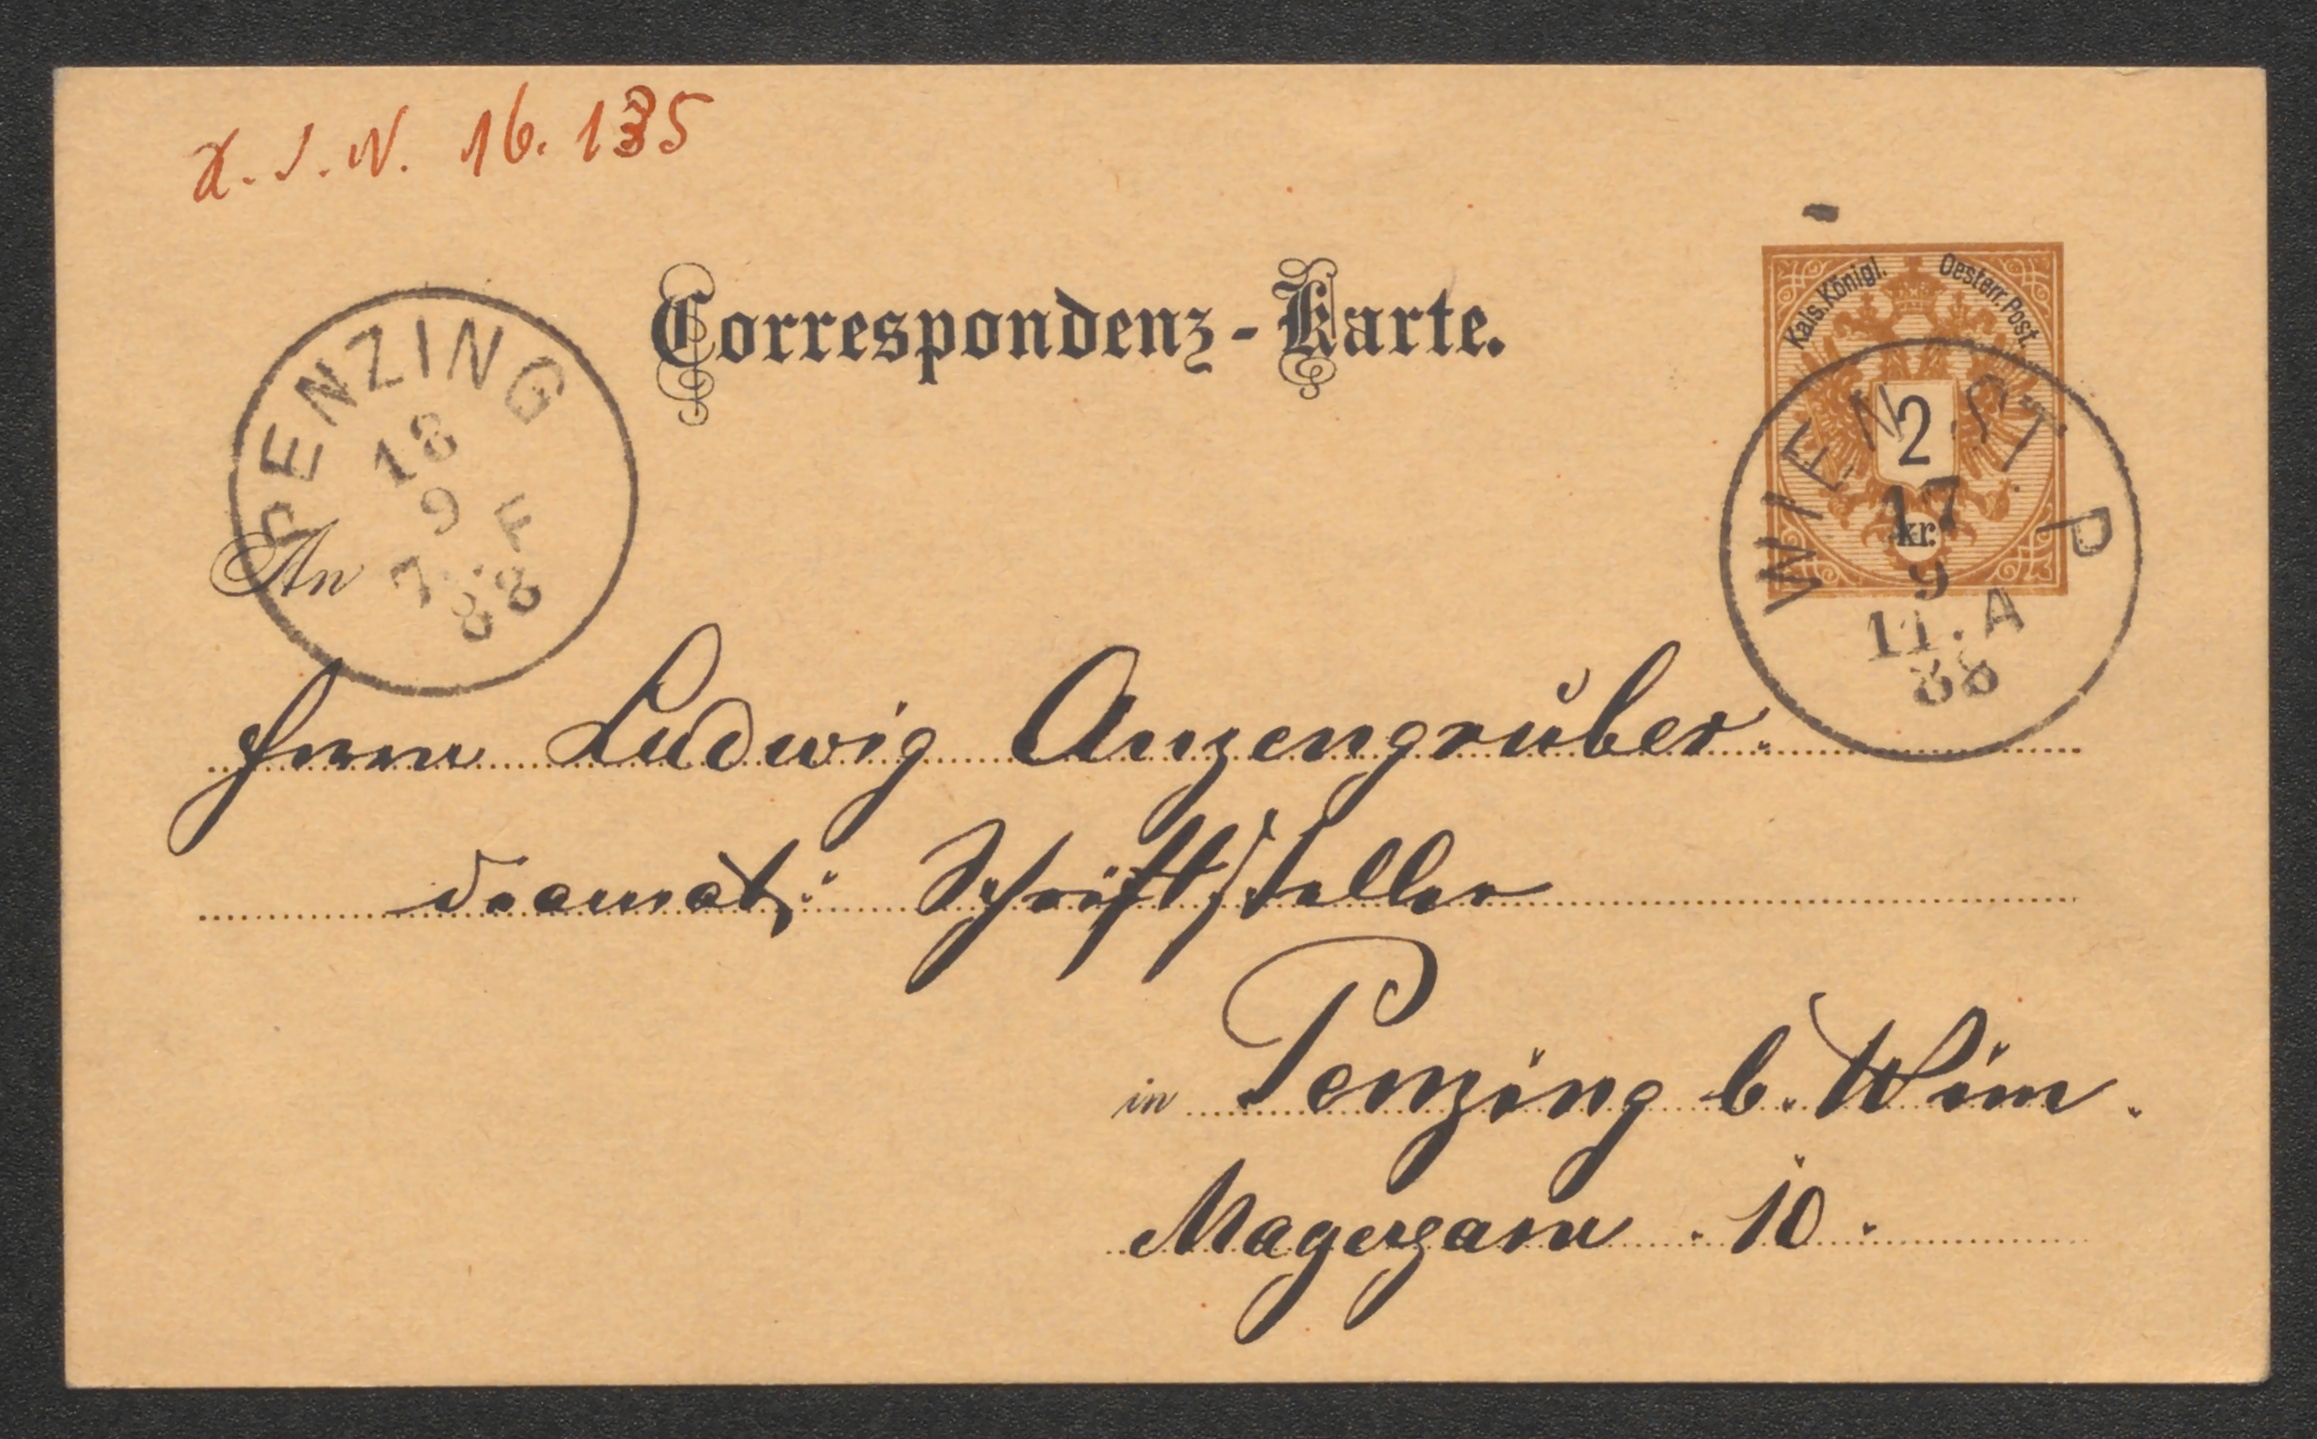 H. I. N. 16. 135
Correspondenz-Karte.
Kais. Königl. Oesterr. Post.
2
kr.
PENZING
18
9
7. F
88
WIEN ST. P
17
9
11. A
88
An
Herrn Ludwig Anzengruber
dramat: Schriftsteller
in Penzing b. Wien.
10.